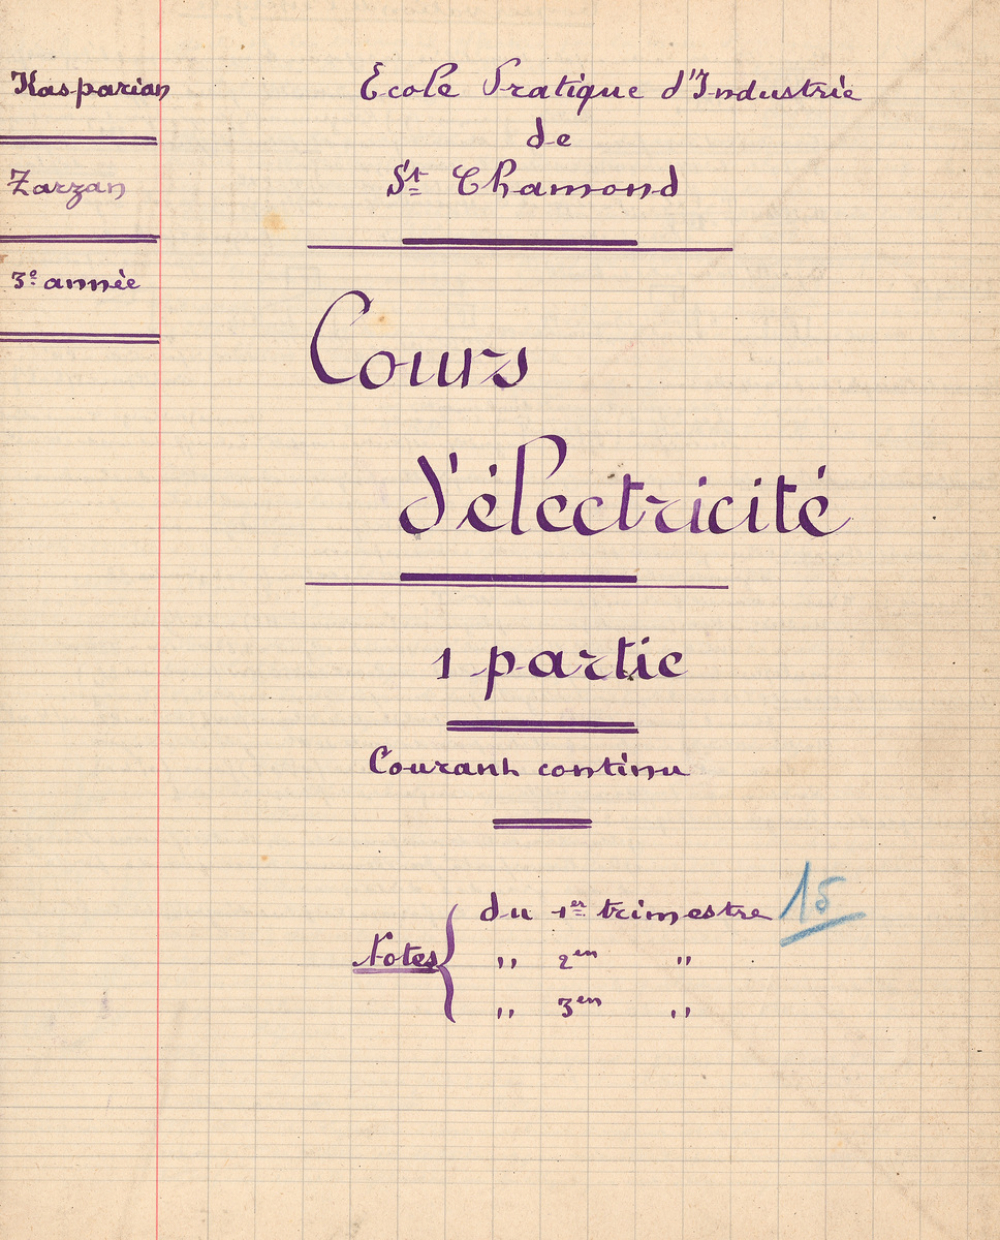 Kasparian
Zarzan
3e année
Ecole Pratique d'Industrie
de
St Chamond
Cours
d'électricité
1 partie
Courant continu
Notes { du 1er trimestre 15
" 2en "
" 3en "